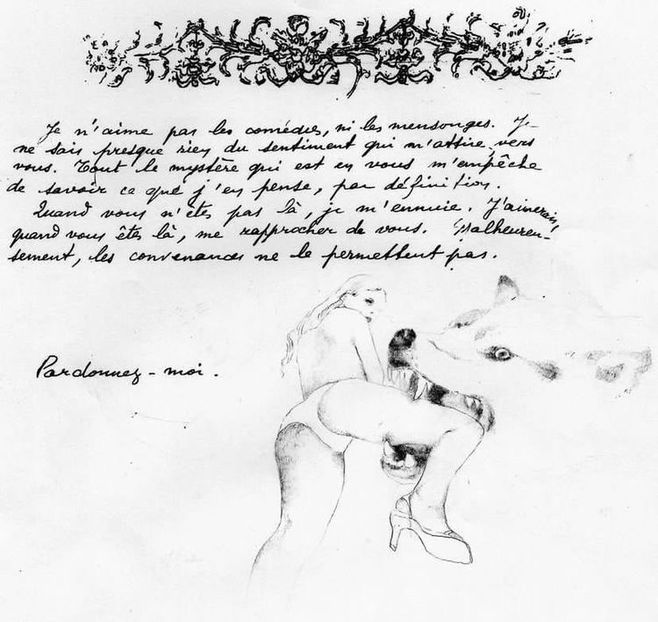 Je n'aime pas les comédies, ni les mensonges. Je
ne sais presque rien du sentiment qui m'attire vers
vous. Tout le mystère qui est en vous m'empêche
de savoir ce que j'en pense, par définition.
Quand vous n'êtes pas là, je m'ennuie. J'aimerais,
quand vous êtes là, me rapprocher de vous. Malheureu-
sement, les convenances ne le permettent pas.
Pardonnez-moi.